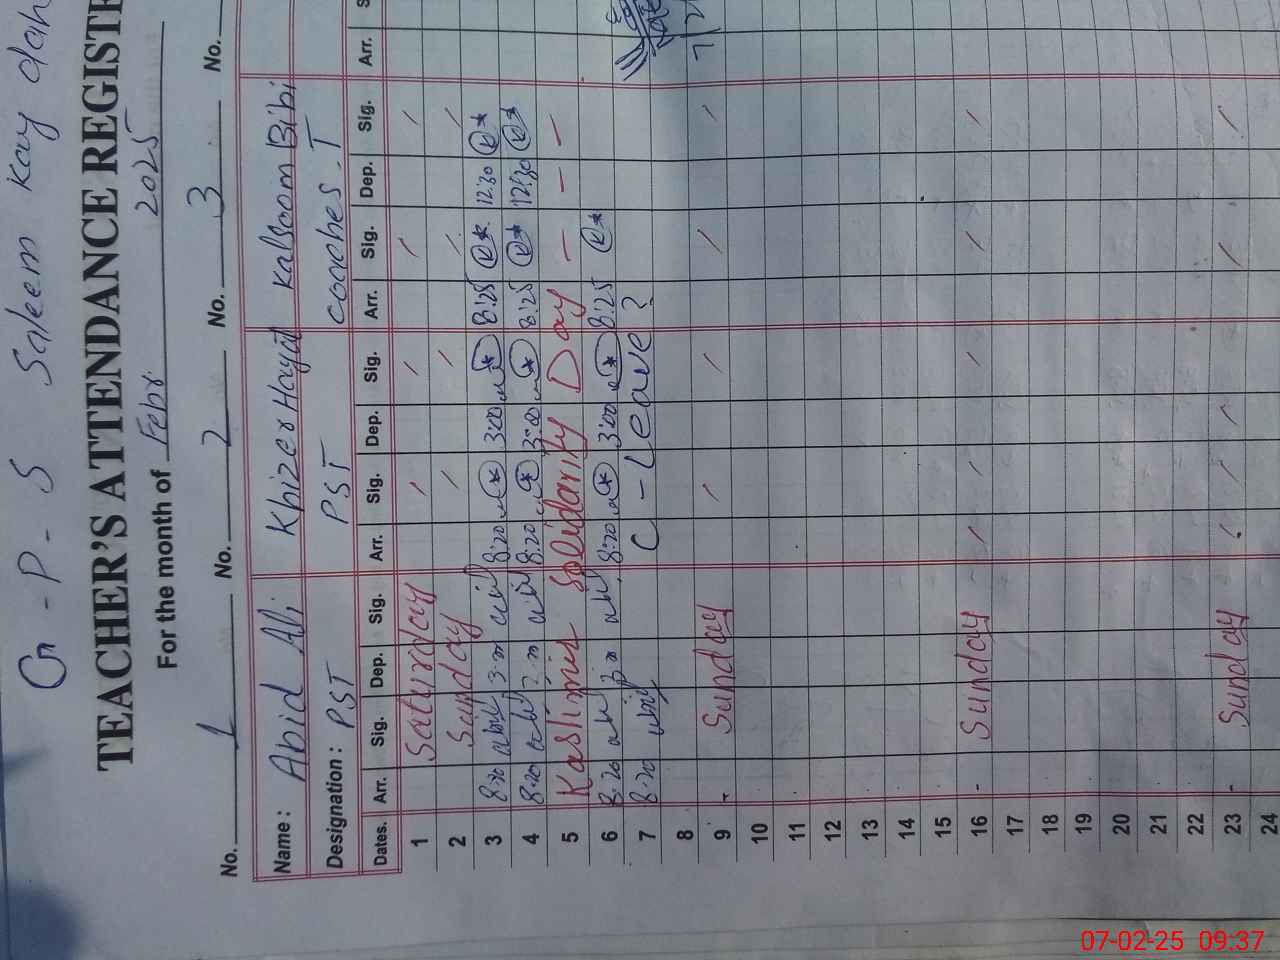 G - P - S Saleem Kay dah
TEACHER'S ATTENDANCE REGISTE
For the month of Febr. 2025
No. 1 No. 2 No. 3 No.
Name: Abid Ali Khizer Hayat Kalsoom Bibi
Designation: PST PST coaches. T
Dates. Arr. Sig. Dep. Sig. Arr. Sig. Dep. Sig. Arr. Sig. Dep. Sig. Arr. S
1 Saturday
2 Sunday
3 8:20 8:20 3:00 8:25 12:30
4 8:20 8:20 3:00 8:25 12:30
5 Kashmir Solidarity Day - - -
6 8:20 8:20 3:00 8:25
7 8:20 C - Leave ?
8
9 Sunday
10
11
12
13
14
15
16 Sunday
17
18
19
20
21
22
23 Sunday
24
07-02-25 09:37